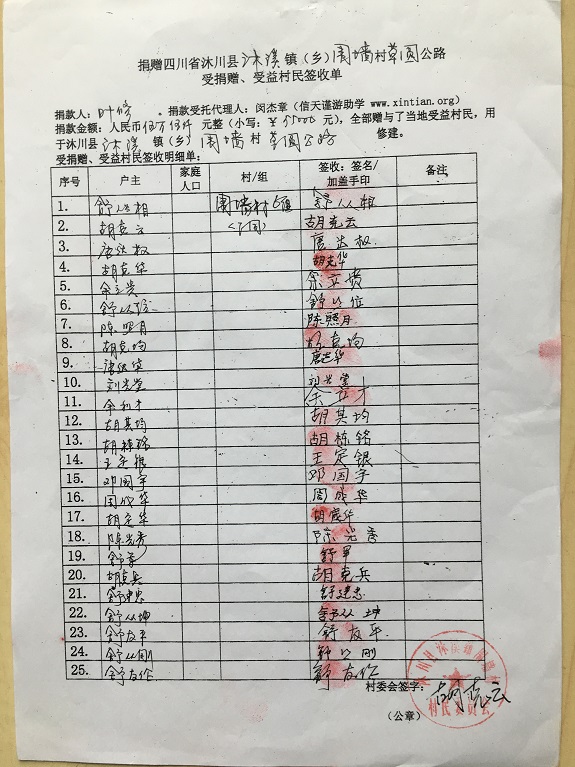 捐赠四川省沐川县沐溪镇(乡)围墙村草圆公路
受捐赠、受益村民签收单
捐款人:叶修 捐款受托代理人:闵杰章(信天谨游助学 www.xintian.org)
捐款金额:人民币伍万伍仟元整(小写:¥55000元),全部赠与了当地受益村民,用
于沐川县沐溪镇(乡)围墙村草圆公路修建。
受捐赠、受益村民签收明细单:
序号 户主 家庭人口 村/组 签收:签名/加盖手印 备注
1. 围墙村
2. 胡克云 胡克云
3.
4. 胡克华 胡克华
5. 余立贵 余立贵
6. 舒以位 舒以位
7. 陈照月 陈照月
8. 胡克均 胡克均
9.
10.
11. 余立才
12. 胡其均 胡其均
13. 胡栋铭 胡栋铭
14. 王定银 王定银
15. 邓国宇 邓国宇
16. 周成华 周成华
17.
18. 陈光秀 陈光香
19.
20. 胡克兵 胡克兵
21. 舒建忠 舒建忠
22. 舒从坤 舒从坤
23. 舒友平 舒友平
24. 舒以刚
25. 舒友作 舒友作
村委会签字:胡克云
村民委员会
(公章)